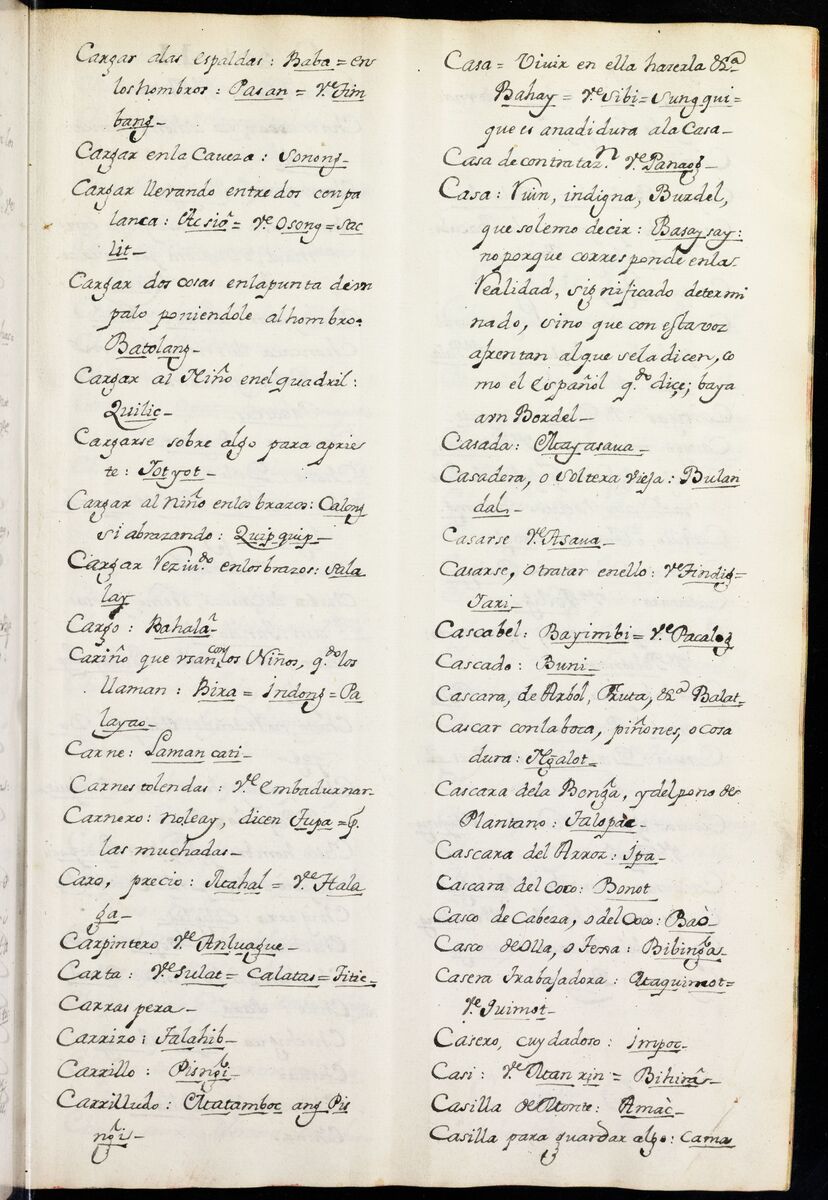 Cargar alas espaldas: Baba = en
los hombros: Pasan = Ve. Tim
bang_
Cargar enla Caveza: Sonong_
Cargar llevando entre dos con pa
lanca: Acsiõ = Ve. Osong = Sac
lit_
Cargar dos cosas enlapunta de vn
palo poniendole al hombro:
Batolang_
Cargar al Niño enel quadril:
Quilic_
Cargarse sobre algo para aprie
te: Totyot_
Cargar al niño enlos brazos: Calong
si abrazando: Quipquip_
Cargar enlos brazos: Sala
lay
Cargo: Bahalã_
Cariño que vsan con los Niños, qdo. los
llaman: Bira = Indong = Pa
layao_
Carne: Laman cati_
Carnes tolendas: Ve. Embadurnar_
Carnero: noleay, dicen Tupa =
las muchadas_
Caro, precio: Mahal = Ve. Hala
ga_
Carpintero Ve. Anluague_
Carta: Ve. Sulat = Calatas = Titic_
Carraspera_
Carrizo: Talahib_
Carrillo: Pisngĩ_
Carrilludo: Matamboc ang Pis
ngĩ_
Casa = Vivir en ella hazerla &ª
Bahay = Ve. Sibi = Sungqui =
que es anadidura ala Casa_
Casa de contratazn. Ve. Panaog_
Casa: Ruin, indigna, Burdel,
que solemo decir: Basaysay:
no porque corresponde enla
Realidad, significado determi
nado, sino que con esta voz
afrentan al que sela dicen, co
mo el Español qdo. dice; baya
a vn Bordel_
Casada: May asaua_
Casadera, o soltera vieja: Bulan
dal_
Casarse Ve. Asaua_
Casarse, o tratar enello: Ve. Tindig =
Tari_
Cascabel: Bayimbi = Ve. Pacalog
Cascado: Buni_
Cascara, de Arbol, Fruta, &ª Balat_
Cascar con la boca, piñones, o cosa
dura: Ngalot_
Cascara dela Bonga, y del pono de
Plantano: Talopac_
Cascara del Arroz: Ipa_
Cascara del Coco: Bonot
Casco de Cabeza, o del Coco: Baò_
Casco de olla, o Texa: Bibinga_
Casera trabajadora: Maquimot =
Ve. Quimot_
Casero, cuydadoso: Impoc_
Casi: Ve. Man rin = Bihirã_
Casilla de Monte: Amàc_
Casilla para guardar algo: Cama